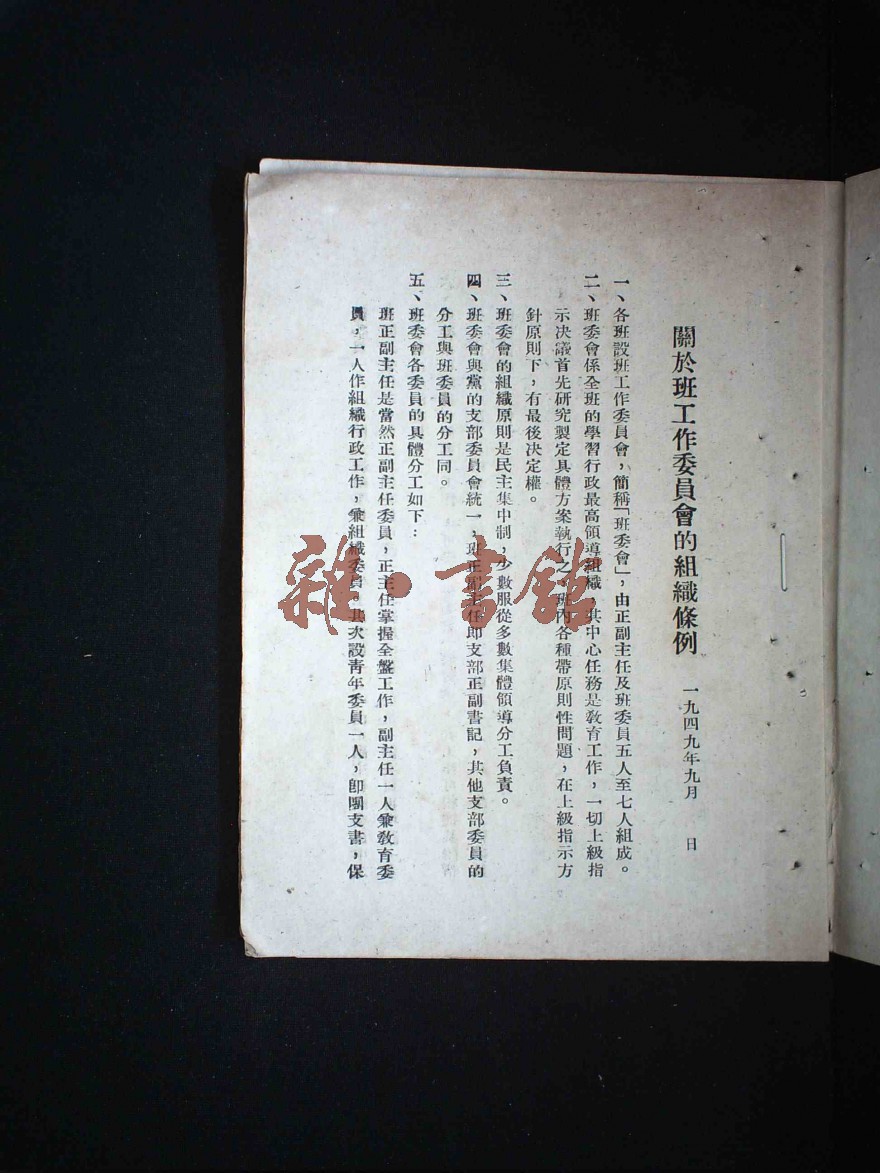 關於班工作委員會的組織條例 一九四九年九月 日
一、各班設班工作委員會，簡稱「班委會」，由正副主任及班委員五人至七人組成。
二、班委會係全班的學習行政最高領導組織，其中心任務是教育工作，一切上級指
示决議首先研究製定具體方案執行之，班內各種帶原則性問題，在上級指示方
針原則下，有最後决定權。
三、班委會的組織原則是民主集中制，少數服從多數集體領導分工負責。
四、班委會與黨的支部委員會統一，班正副主任即支部正副書記，其他支部委員的
分工與班委員的分工同。
五、班委會各委員的具體分工如下：
班正副主任是當然正副主任委員，正主任掌握全盤工作，副主任一人兼教育委
員，一人作組織行政工作，兼組織委員。其次設青年委員一人，即團支書，保
雜·書館